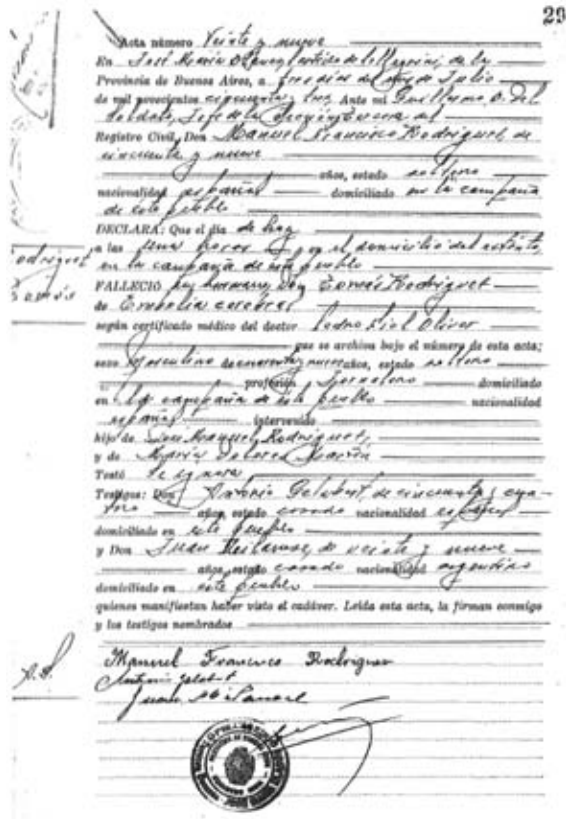 29
Acta número Veinte y nueve
En José María
Provincia de Buenos Aires, a trece dias del mes de Julio
de mil novecientos cincuenta y tres Ante mí Guillermo O. Del
Jefe de la Sección del
Registro Civil, Don Manuel Francisco Rodriguez, de
cincuenta y nueve
años, estado soltero
nacionalidad español domiciliado en la campaña
de este pueblo
DECLARA: Que el día de hoy
a las horas en el domicilio del
en la campaña de este pueblo
FALLECIÓ su hermano Don Tomás Rodriguez
de Embolia cerebral
según certificado médico del doctor Pedro Oliver
que se archiva bajo el número de esta acta;
sexo Masculino de años, estado soltero
profesión Jornalero domiciliado
en la campaña de este pueblo nacionalidad
español intervenido
hijo de José Manuel Rodriguez,
y de María Dolores
Testó Se ignora
Testigos: Don Antonio Gelabert, de cincuenta y cua-
tro años, estado casado nacionalidad español
domiciliado en este pueblo
y Don Juan de veinte y nueve
años, estado casado nacionalidad argentino
domiciliado en este pueblo
quienes manifiestan haber visto el cadáver. Leída esta acta, la firman conmigo
y los testigos nombrados
Rodriguez
Tomás
Manuel Francisco Rodriguez
Antonio Gelabert
Juan